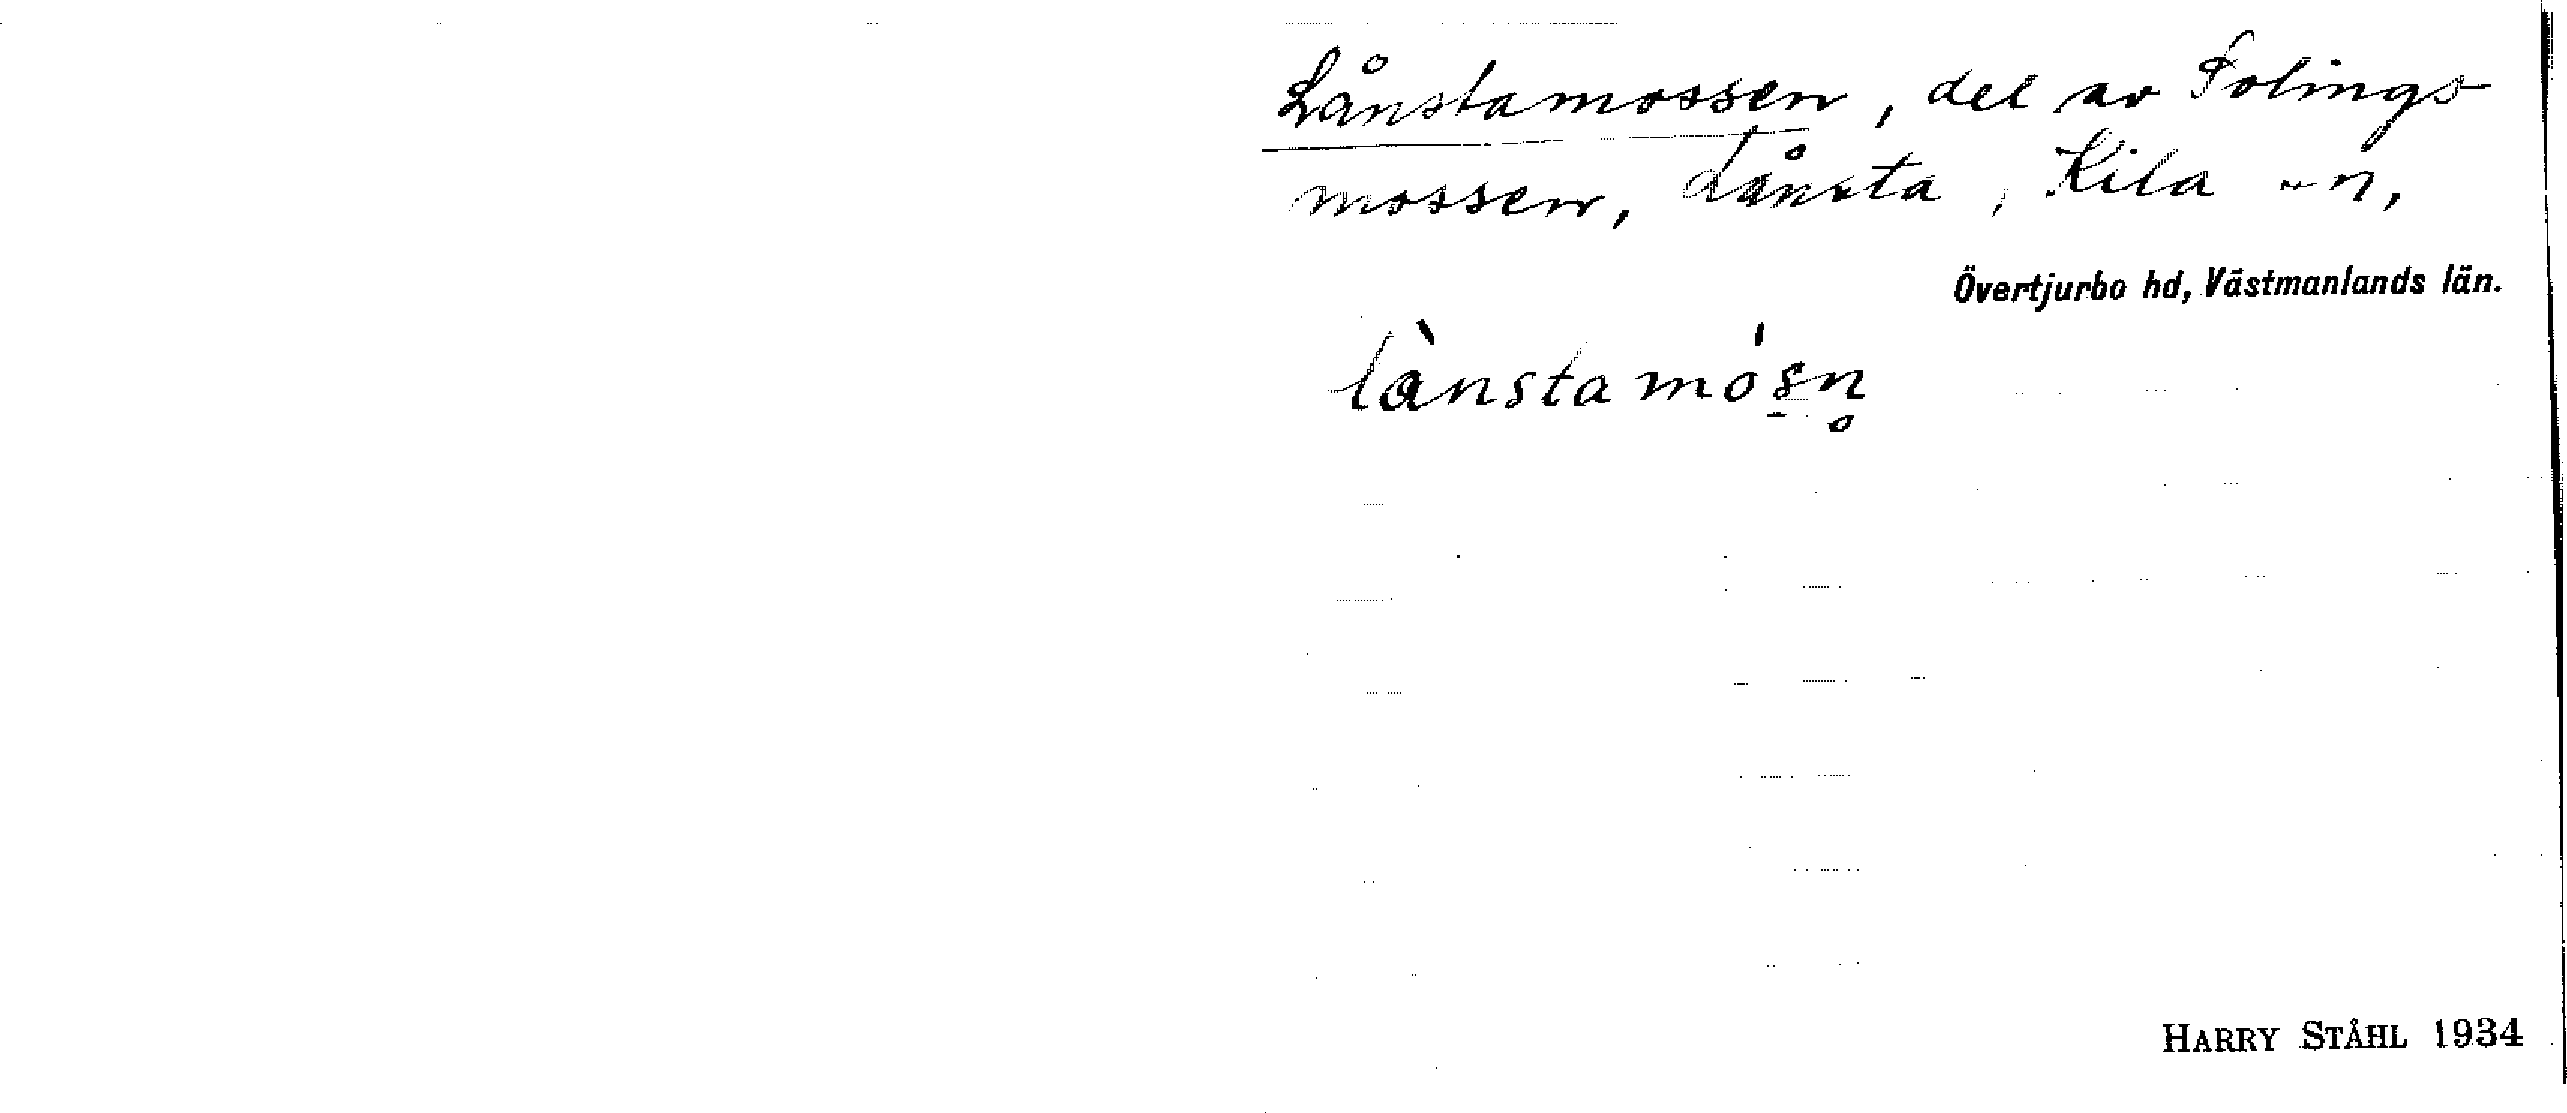 Lånstamossen, del av Solings
mossen, Lånsta, Kila sn,
Övertjurbo hd, Västmanlands län.
lànstamósn̥
HARRY STÅHL 1934